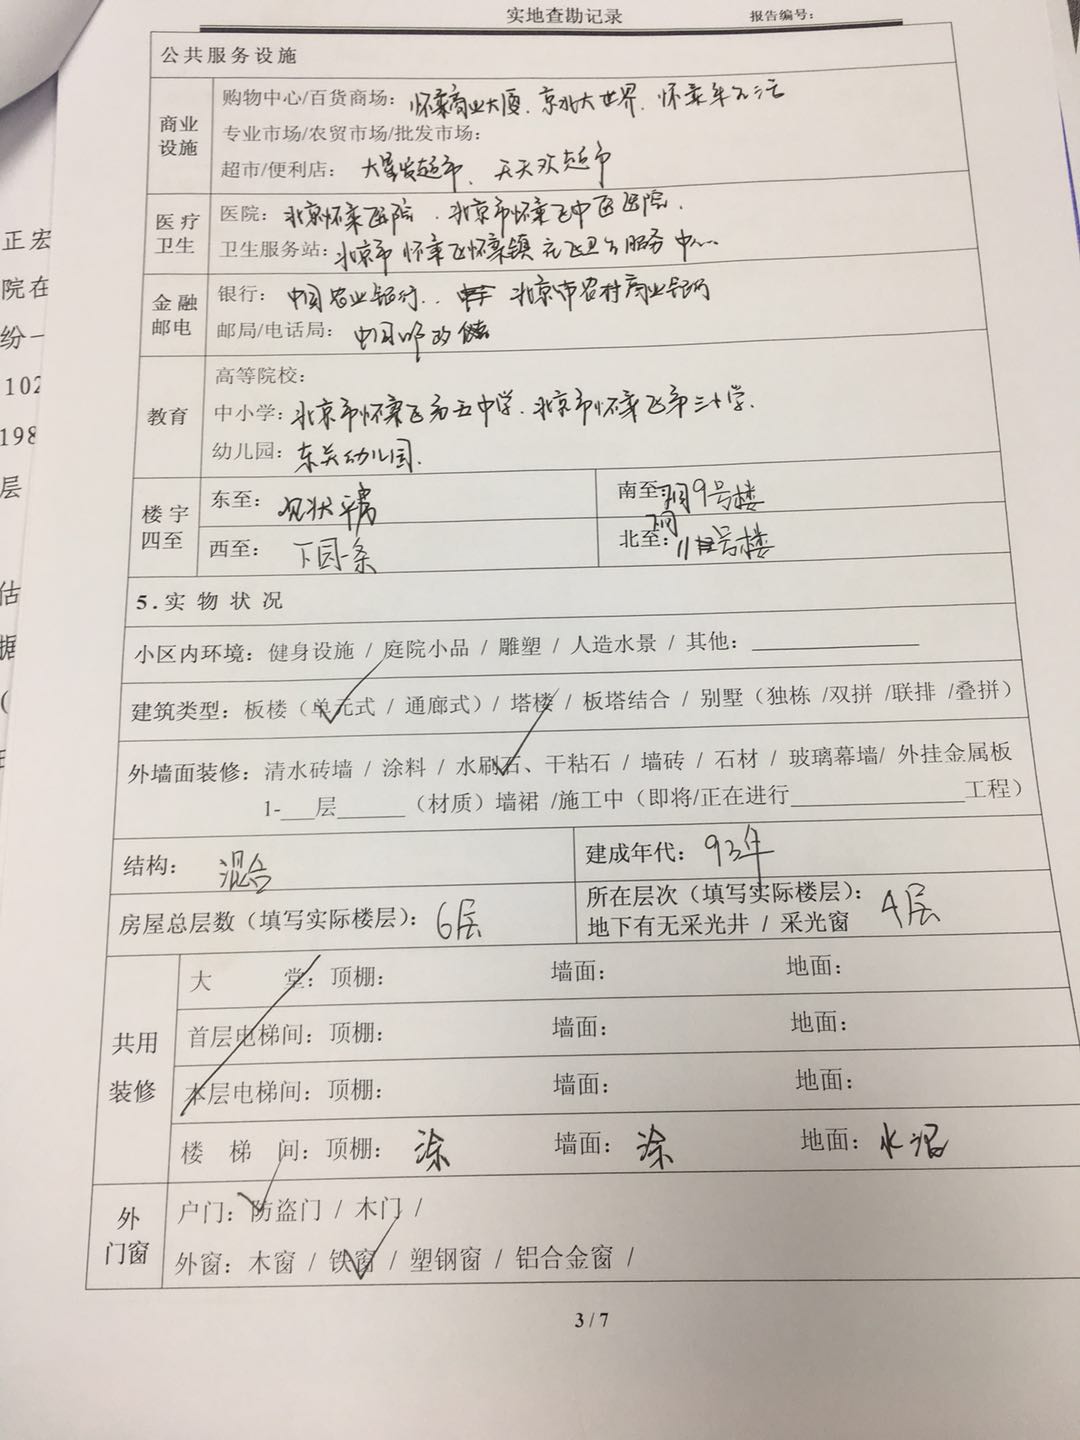 实地查勘记录 报告编号：
公共服务设施
商业设施
购物中心/百货商场：怀柔商业大厦、京北大世界、怀柔
专业市场/农贸市场/批发市场：
超市/便利店：大星发超市、天天欢超市
医疗卫生
医院：北京怀柔医院、北京市怀柔区中医医院、
卫生服务站：北京市怀柔区怀柔镇 卫生服务中心
金融邮电
银行：中国农业银行、北京市农村商业银行
邮局/电话局：中国邮政储
教育
高等院校：
中小学：北京市怀柔区第五中学、北京市怀柔区第三小学、
幼儿园：东关幼儿园、
楼宇四至
东至：现状平房 南至：9号楼
西至：下园一条 北至：11号楼
5.实物状况
小区内环境：健身设施 / 庭院小品 / 雕塑 / 人造水景 / 其他：
建筑类型：板楼（单元式 / 通廊式）/ 塔楼 / 板塔结合 / 别墅（独栋 /双拼 /联排 /叠拼）
外墙面装修：清水砖墙 / 涂料 / 水刷石、干粘石 / 墙砖 / 石材 / 玻璃幕墙/ 外挂金属板
1-___层______（材质）墙裙 /施工中（即将/正在进行_______________工程）
结构：混合 建成年代：93年
房屋总层数（填写实际楼层）：6层 所在层次（填写实际楼层）：4层
地下有无采光井 / 采光窗
共用装修
大堂：顶棚： 墙面： 地面：
首层电梯间：顶棚： 墙面： 地面：
本层电梯间：顶棚： 墙面： 地面：
楼梯间：顶棚：涂 墙面：涂 地面：水泥
外门窗
户门：防盗门 / 木门 /
外窗：木窗 / 铁窗 / 塑钢窗 / 铝合金窗 /
3 / 7
正宏
院在
纷一
102
198
层
估
据